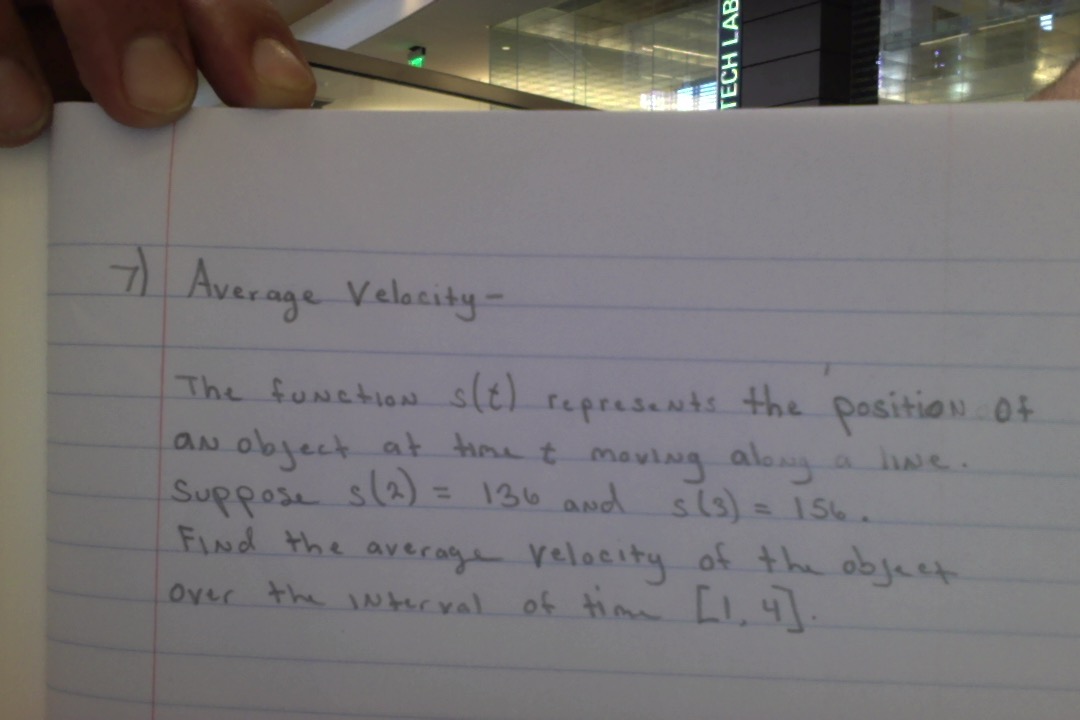 TECH LAB
7) Average Velocity-
The function s(t) represents the position of
an object at time t moving along a line.
Suppose s(2) = 136 and s(3) = 156.
Find the average velocity of the object
over the interval of time [1, 4].